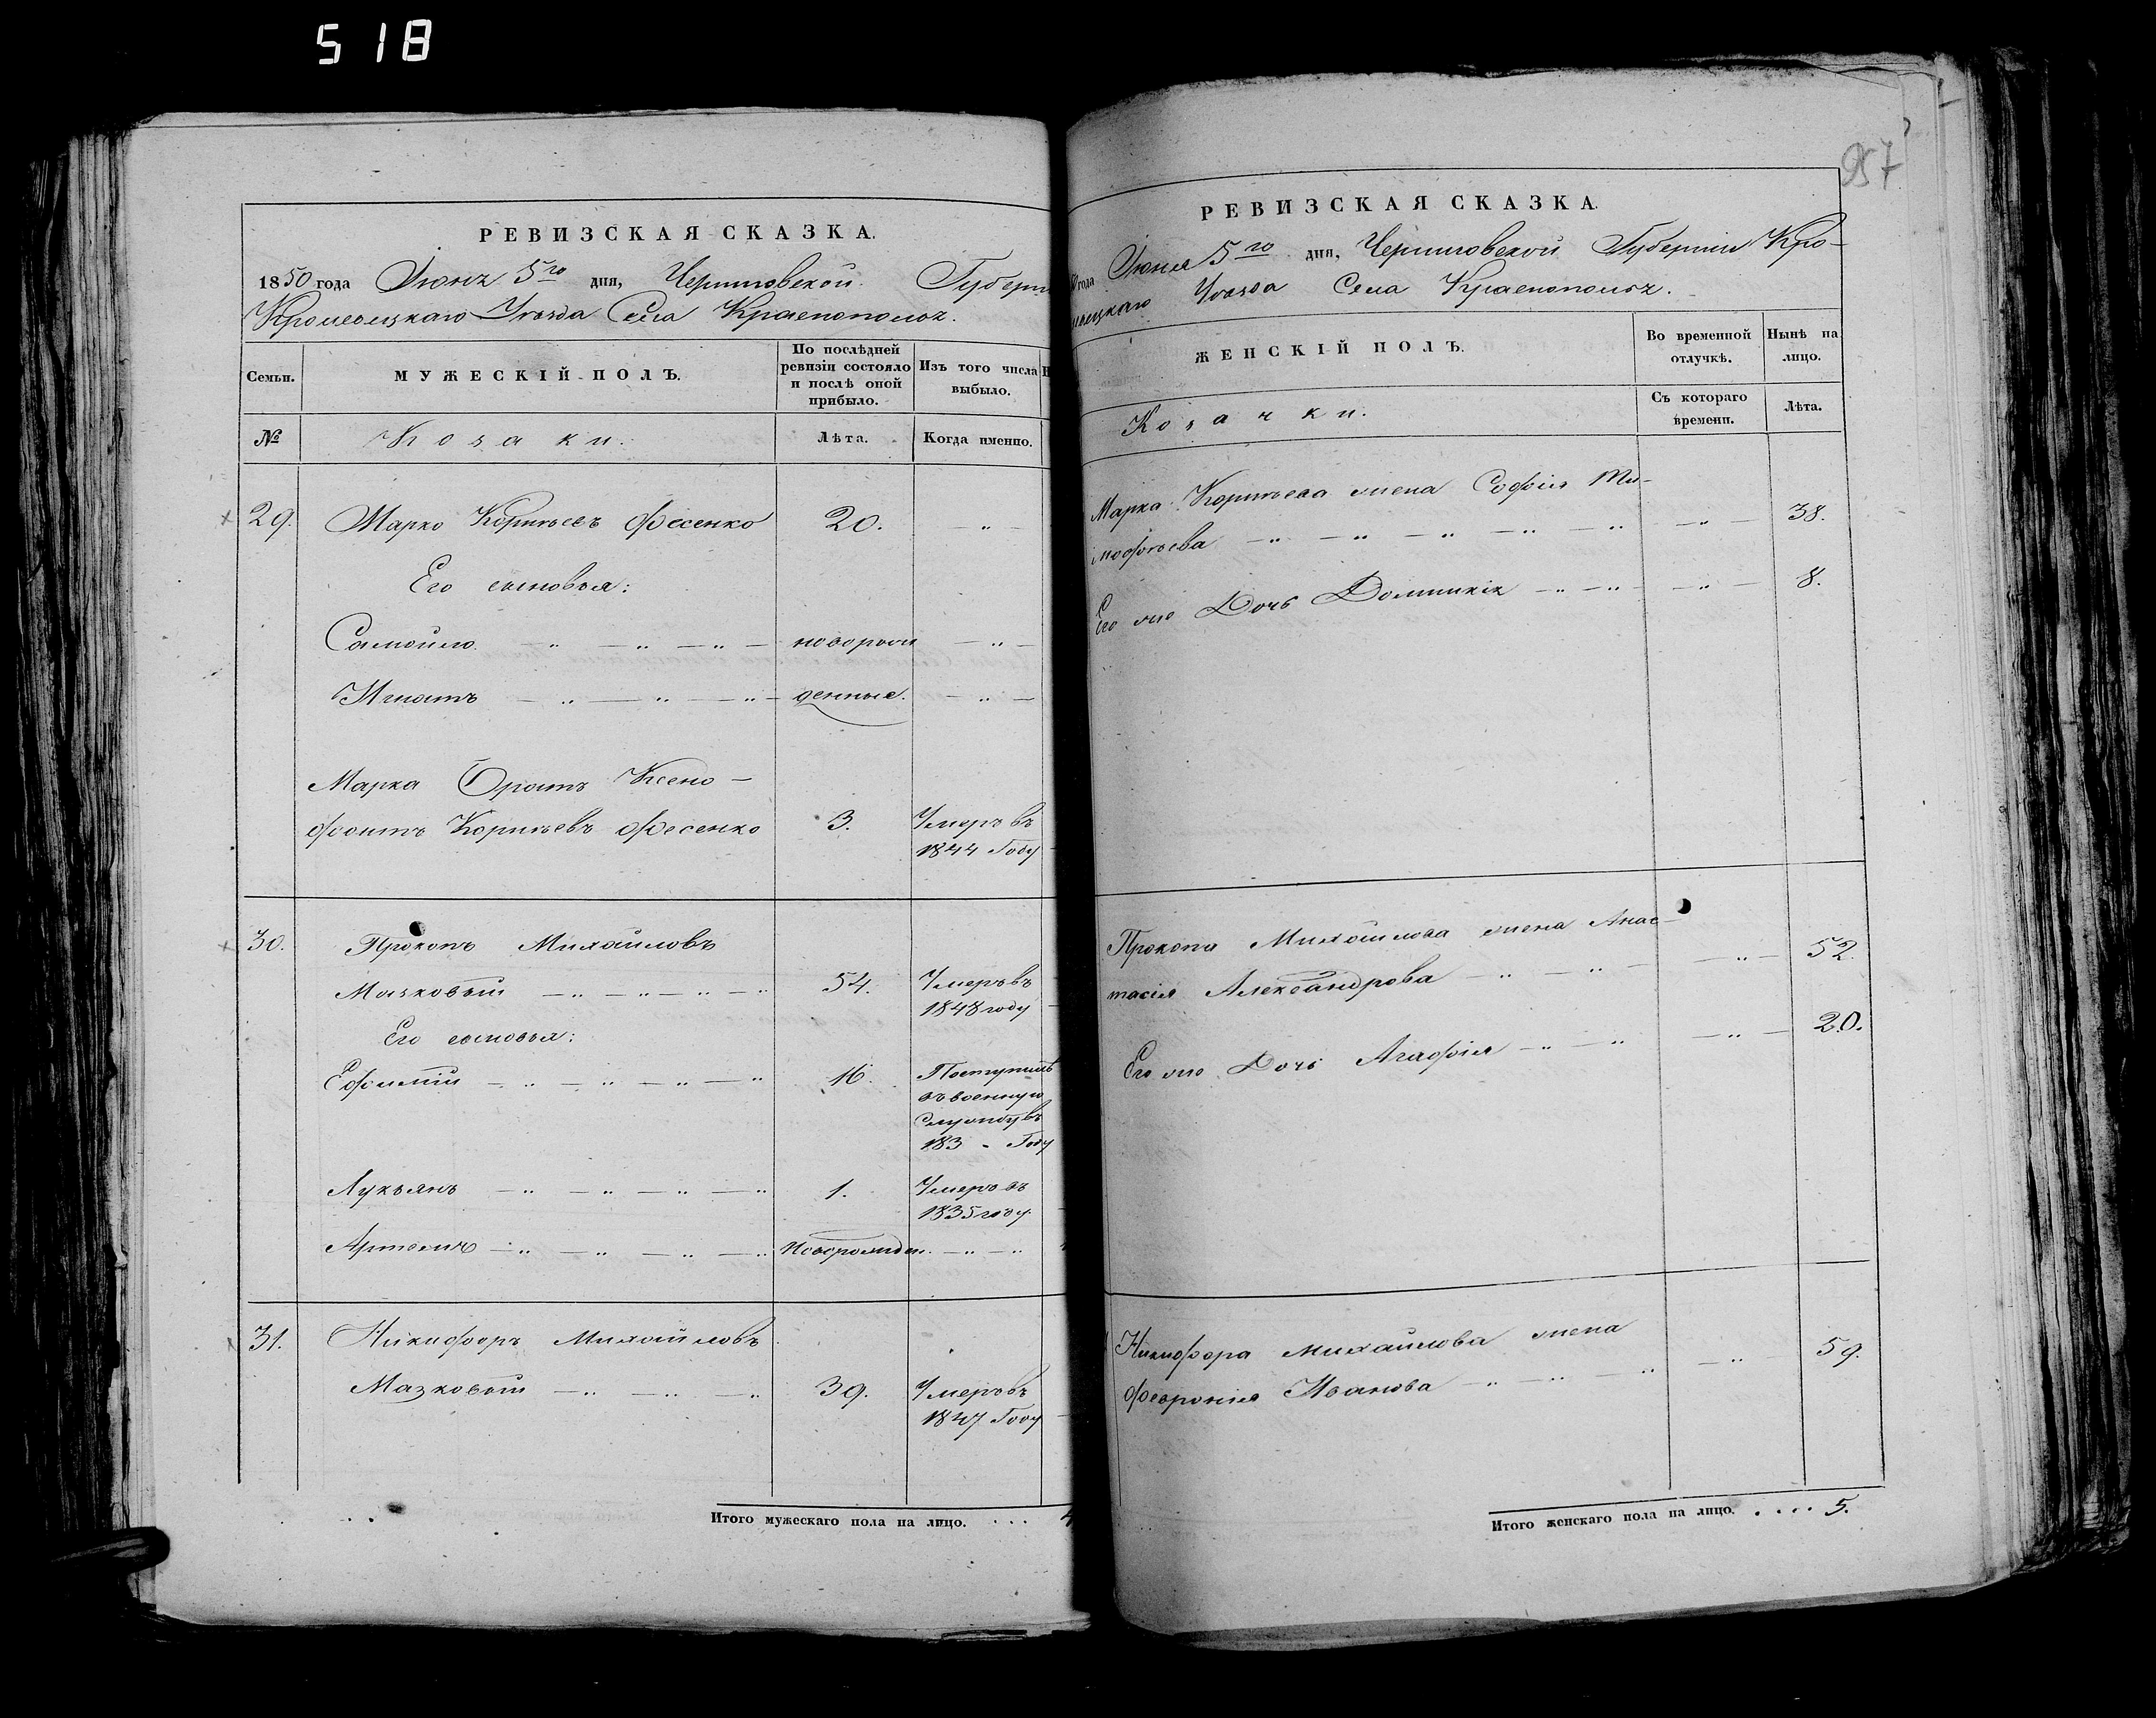 518
РЕВИЗСКАЯ СКАЗКА.
1850 года Июня 5го дня, Черниговской Губерн
Кролевецкаго Уѣзда Села Краснополья.
Семьи.
МУЖЕСКІЙ ПОЛЪ.
По послѣдней ревизіи состояло и послѣ оной прибыло.
Изъ того числа выбыло.
№
Козаки.
Лѣта.
Когда именно.
29. Марко Корнѣевъ Фесенко 20. „
Его сыновья:
Самойло „ „ „ новорож „
Игнатъ „ „ „ денные. „
Марка братъ Ксено-
фонтъ Корнѣевъ Фесенко 3. Умеръ въ
1844 Году
30. Прокопъ Михайловъ
Мазковый „ „ „ „ 54. Умеръ въ
1848 году
Его сыновья:
Ефимій „ „ „ „ 16. Поступилъ
въ военную
службу въ
183 Году
Лукьянъ „ „ „ „ 1. Умеръ въ
1835 году
Артемъ „ „ „ „ Новорожден. „ „
31. Никифоръ Михайловъ
Мазковый „ „ „ 39. Умеръ въ
1847 Году
Итого мужескаго пола на лицо. . . . 4
957
РЕВИЗСКАЯ СКАЗКА.
года Июня 5го дня, Черниговской Губерніи Кро-
левецкаго Уѣзда Села Краснополья.
ЖЕНСКІЙ ПОЛЪ.
Во временной отлучкѣ.
Нынѣ на лицо.
Козачки.
Съ котораго времени.
Лѣта.
Марка Корнѣева жена Софія Ти-
мофѣева „ „ „ „ „ 38.
Его же Дочь Домникія „ „ „ 8.
Прокопа Михайлова жена Анас-
тасія Александрова „ „ „ 52.
Его же Дочь Агафія „ „ „ 20.
Никифора Михайлова жена
Февронія Иванова „ „ „ „ 59.
Итого женскаго пола на лицо. . . . . 5.